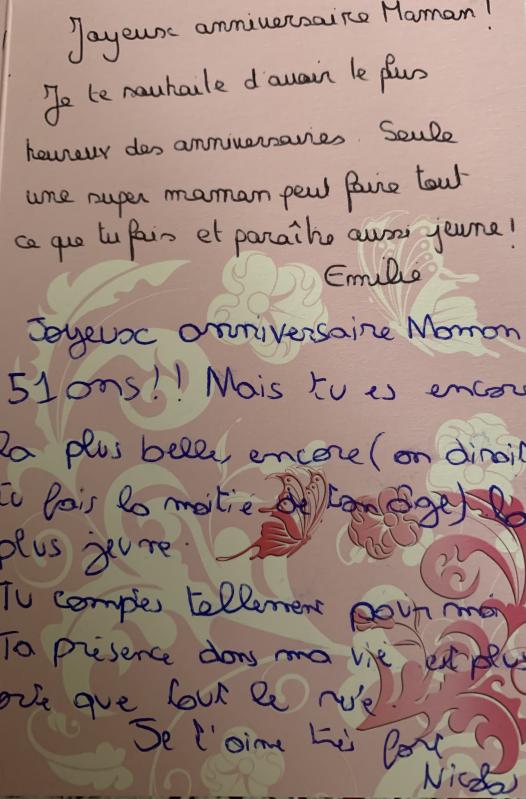 Joyeux anniversaire Maman !
Je te souhaite d'avoir le plus
heureux des anniversaires. Seule
une super maman peut faire tout
ce que tu fais et paraître aussi jeune !
Emilie
Joyeux anniversaire Maman
51 ans !! Mais tu es encore
la plus belle, encore (on dirait
tu fais la moitié de ton âge) la
plus jeune.
Tu comptes tellement pour moi
Ta présence dans ma vie est plus
que tout le reste.
Je t'aime très fort
Nicolas